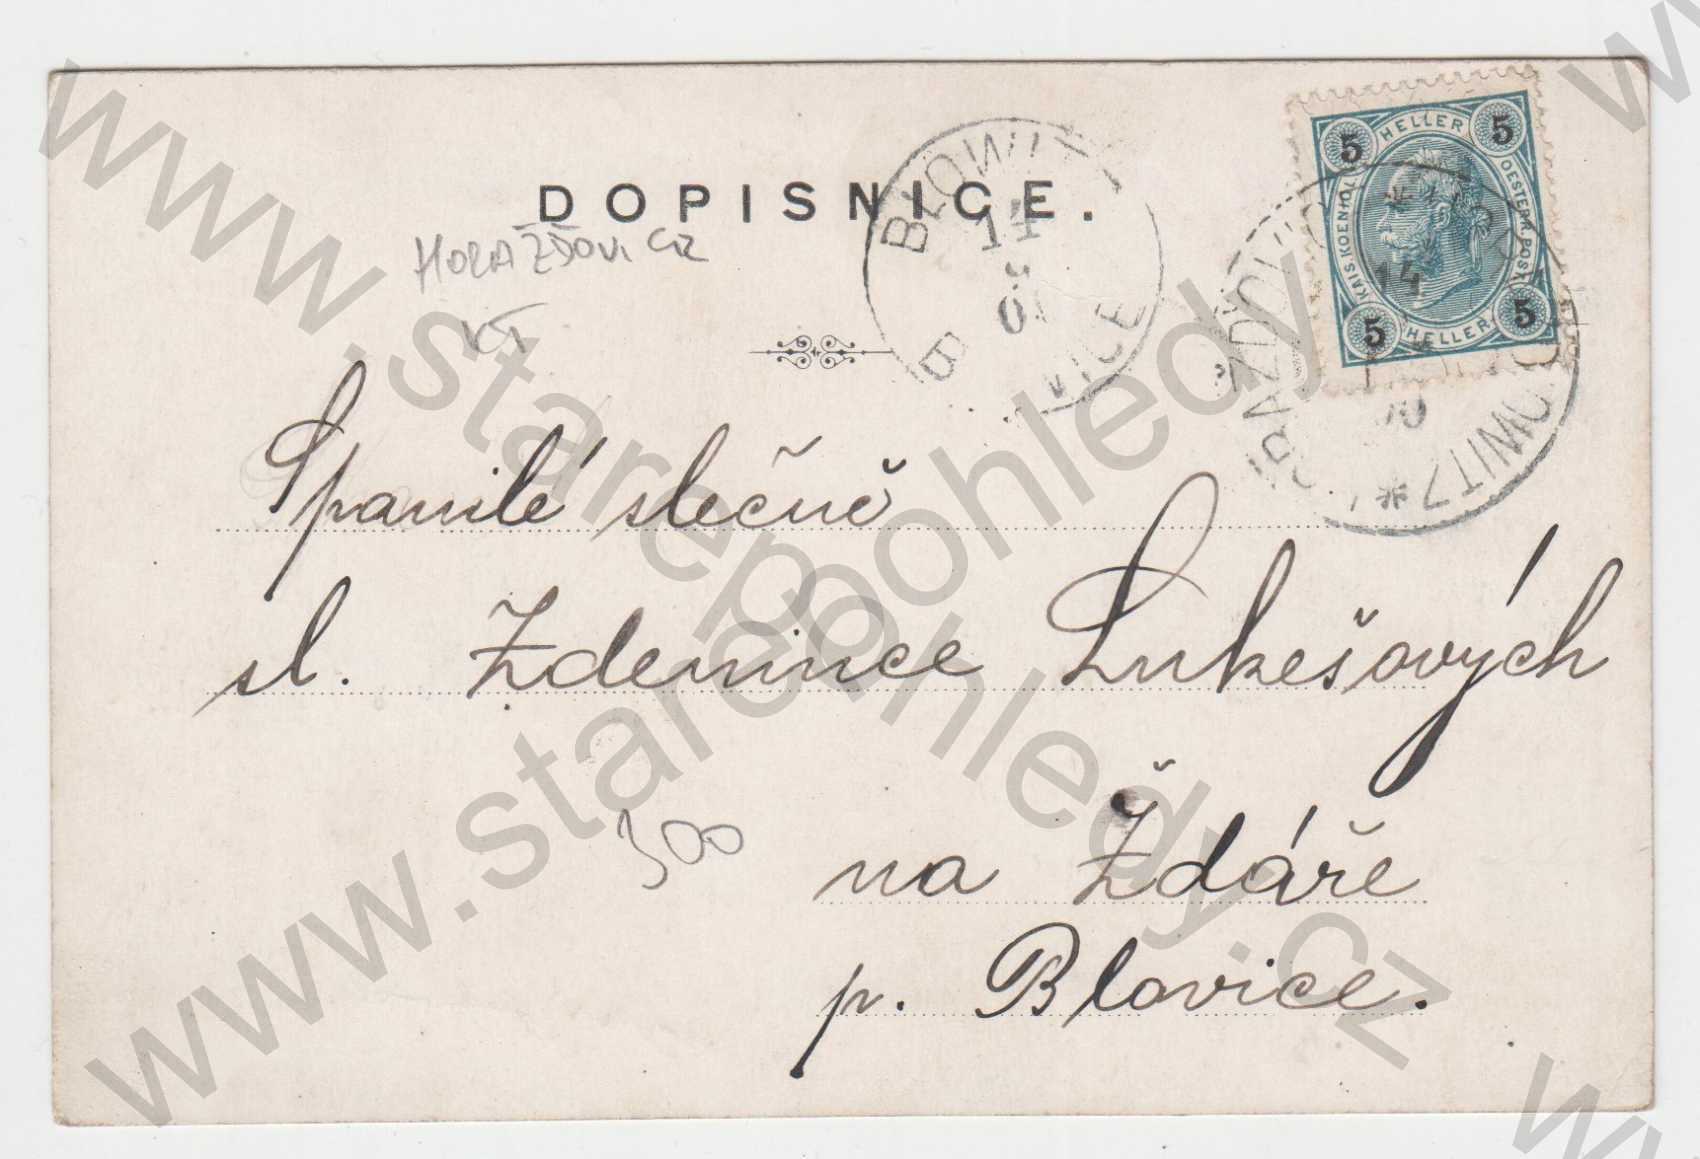 DOPISNICE.
HORAŽĎOVICE
KT
BLOWITZ
14
BLOVICE
5 HELLER 5
KAIS. KOENIGL. OESTERR. POST
5 HELLER 5
14
Spanilé slečně
sl. Zdenince Lukešových
300
na Ždáře
p. Blovice.
www.starepohledy.cz
www.starepohledy.cz